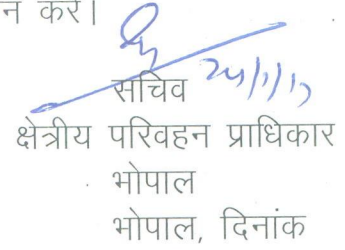 न करें।
सचिव
क्षेत्रीय परिवहन प्राधिकार
भोपाल
भोपाल, दिनांक